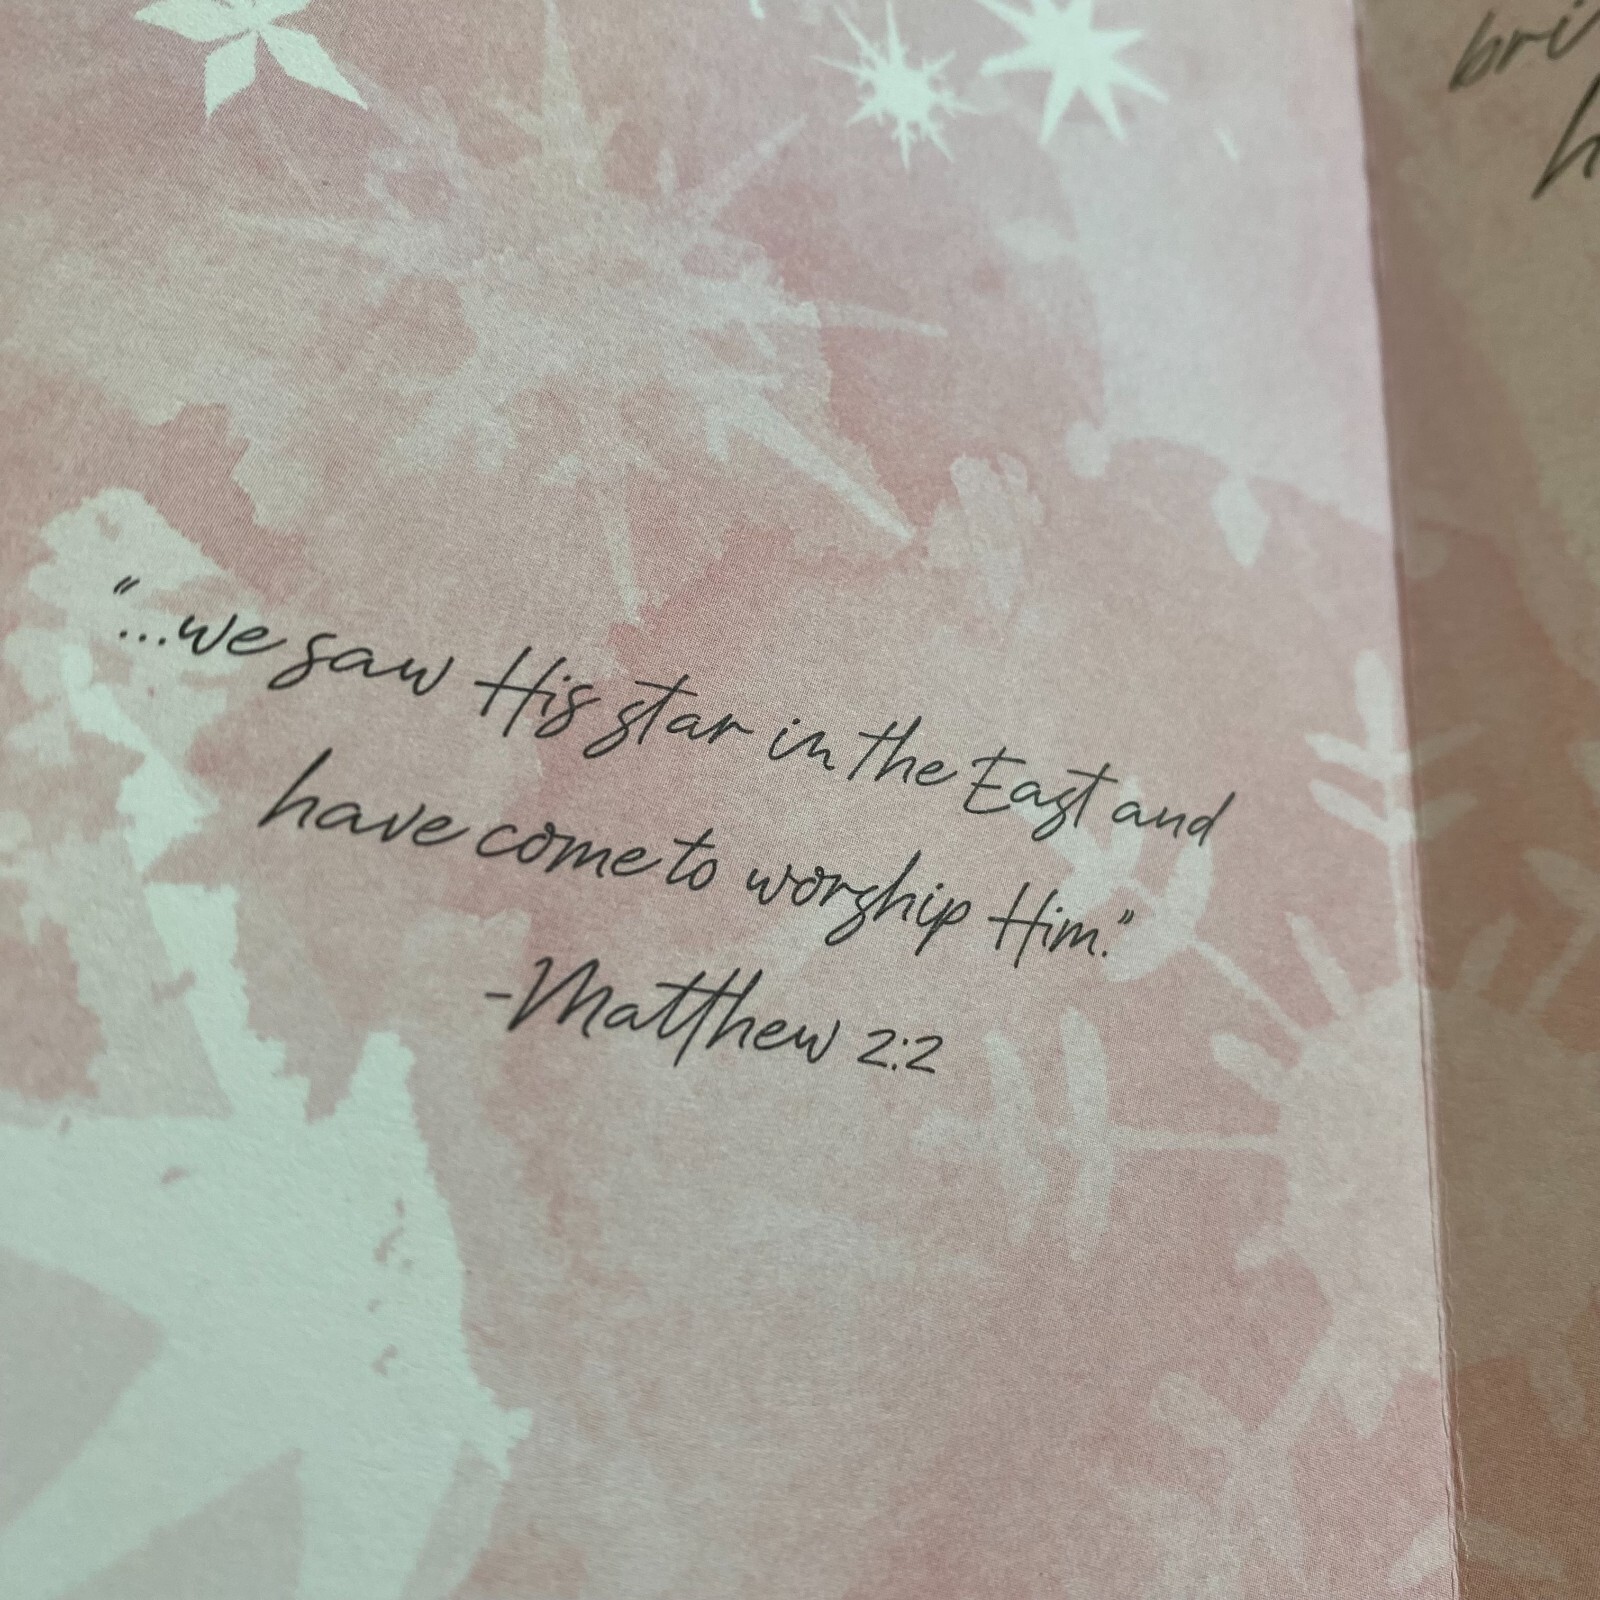 "...we saw His star in the East and
have come to worship Him."
-Matthew 2:2